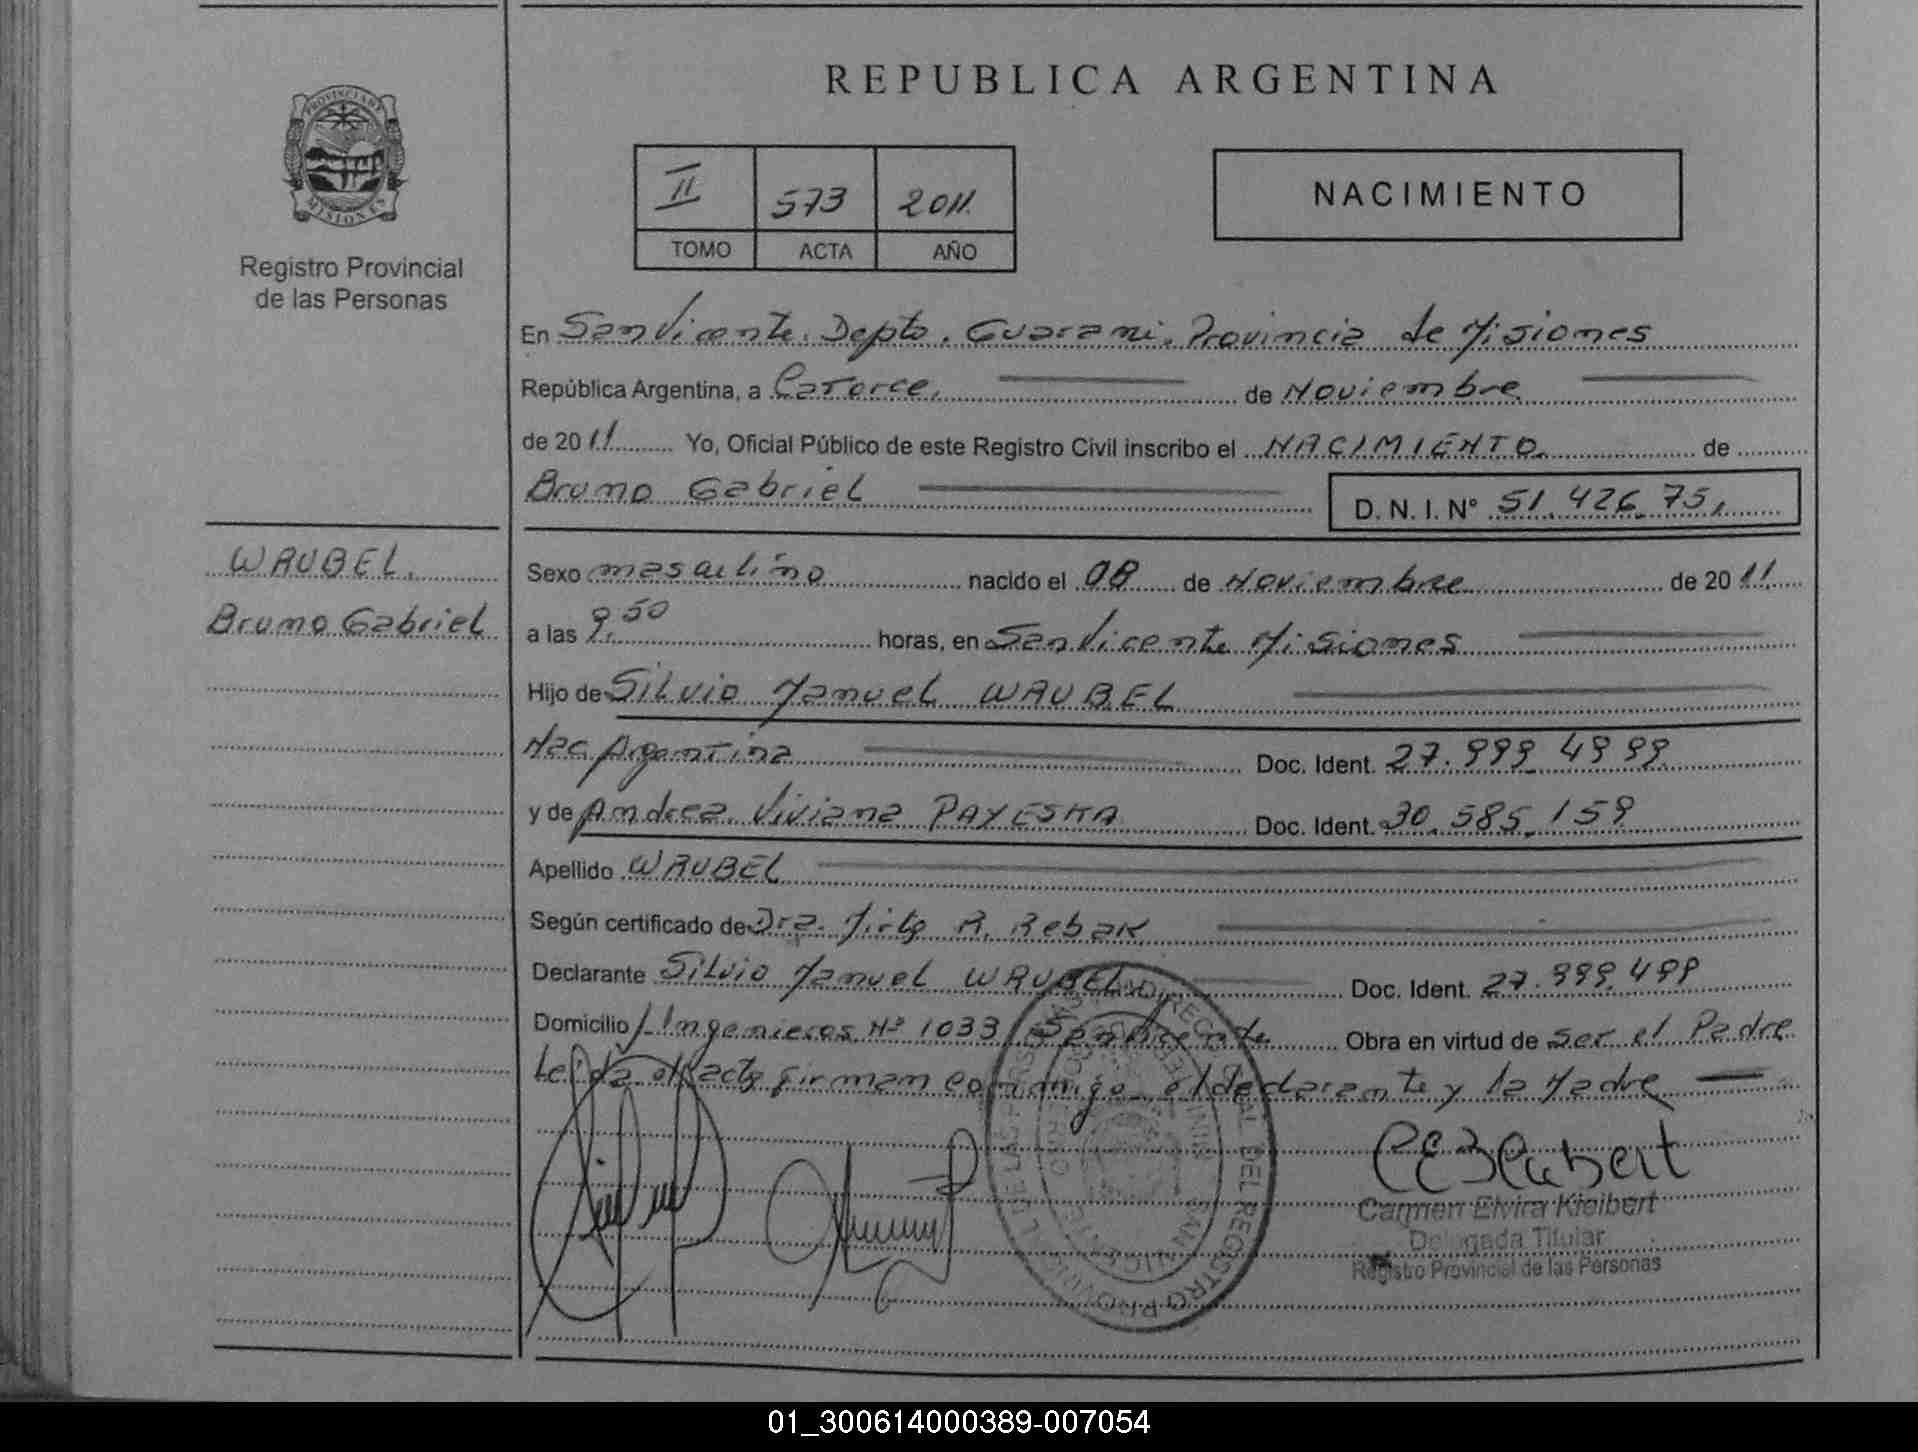 REPUBLICA ARGENTINA
PROVINCIA DE MISIONES
Registro Provincial
de las Personas
II 573 2011.
TOMO ACTA AÑO
NACIMIENTO
En San Vicente. Depto. Guarani. Provincia de Misiones
República Argentina, a Catorce. de Noviembre
de 2011 Yo, Oficial Público de este Registro Civil inscribo el NACIMIENTO. de
Bruno Gabriel D. N. I. Nº 51.426.751
WAUBEL.
Bruno Gabriel
Sexo masculino nacido el 08 de Noviembre de 2011
a las 9,50 horas, en San Vicente Misiones
Hijo de Silvio Manuel WAUBEL
Nac. Argentina Doc. Ident. 27.999.4999
y de Andrea Viviana PAYESKA Doc. Ident. 30.585.159
Apellido WAUBEL
Según certificado de Dra. Mirta R. Rebak
Declarante Silvio Manuel WAUBEL Doc. Ident. 27.999.499
Domicilio J. Ingenieros Nº 1033 San Vicente Obra en virtud de ser el Padre
Leida el acta firman conmigo el declarante y la Madre
CEKleibert
Carmen Elvira Kleibert
Delegada Titular
Registro Provincial de las Personas
01_300614000389-007054